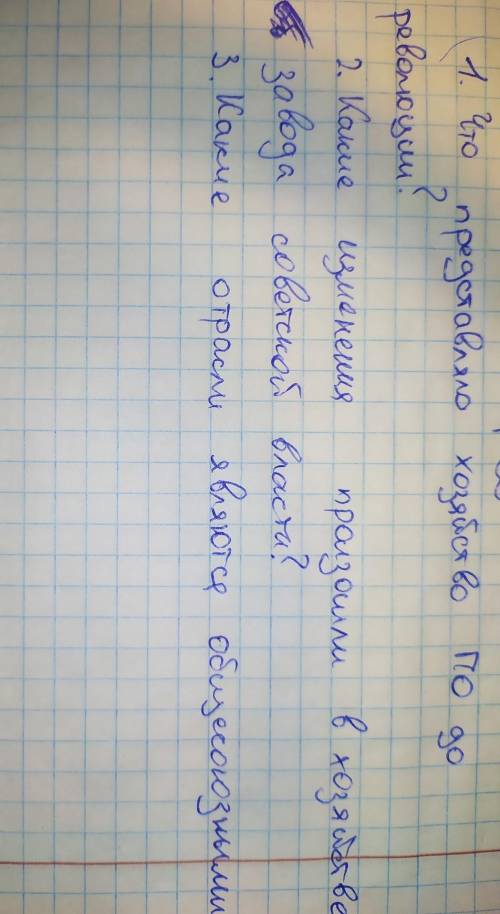 1. Что представляло хозяйство ПО до
революции?
2. Какие изменения произошли в хозяйстве
завода советской власти?
3. Какие отрасли являются общесоюзными